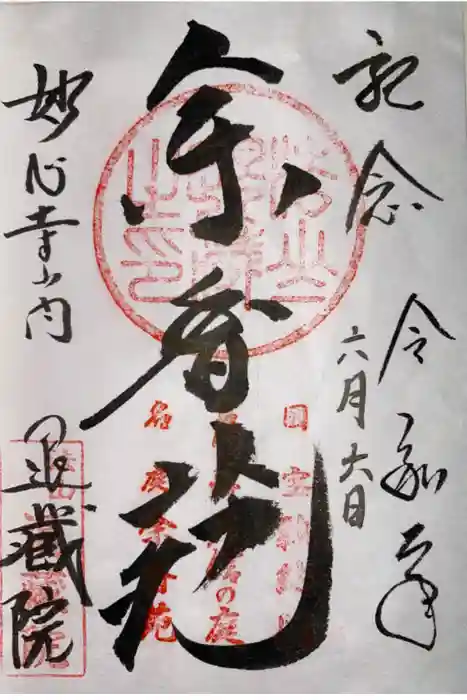 記念 令和元年
六月六日
余香苑
妙心寺山内
退蔵院
国宝
の庭
名庭余香苑